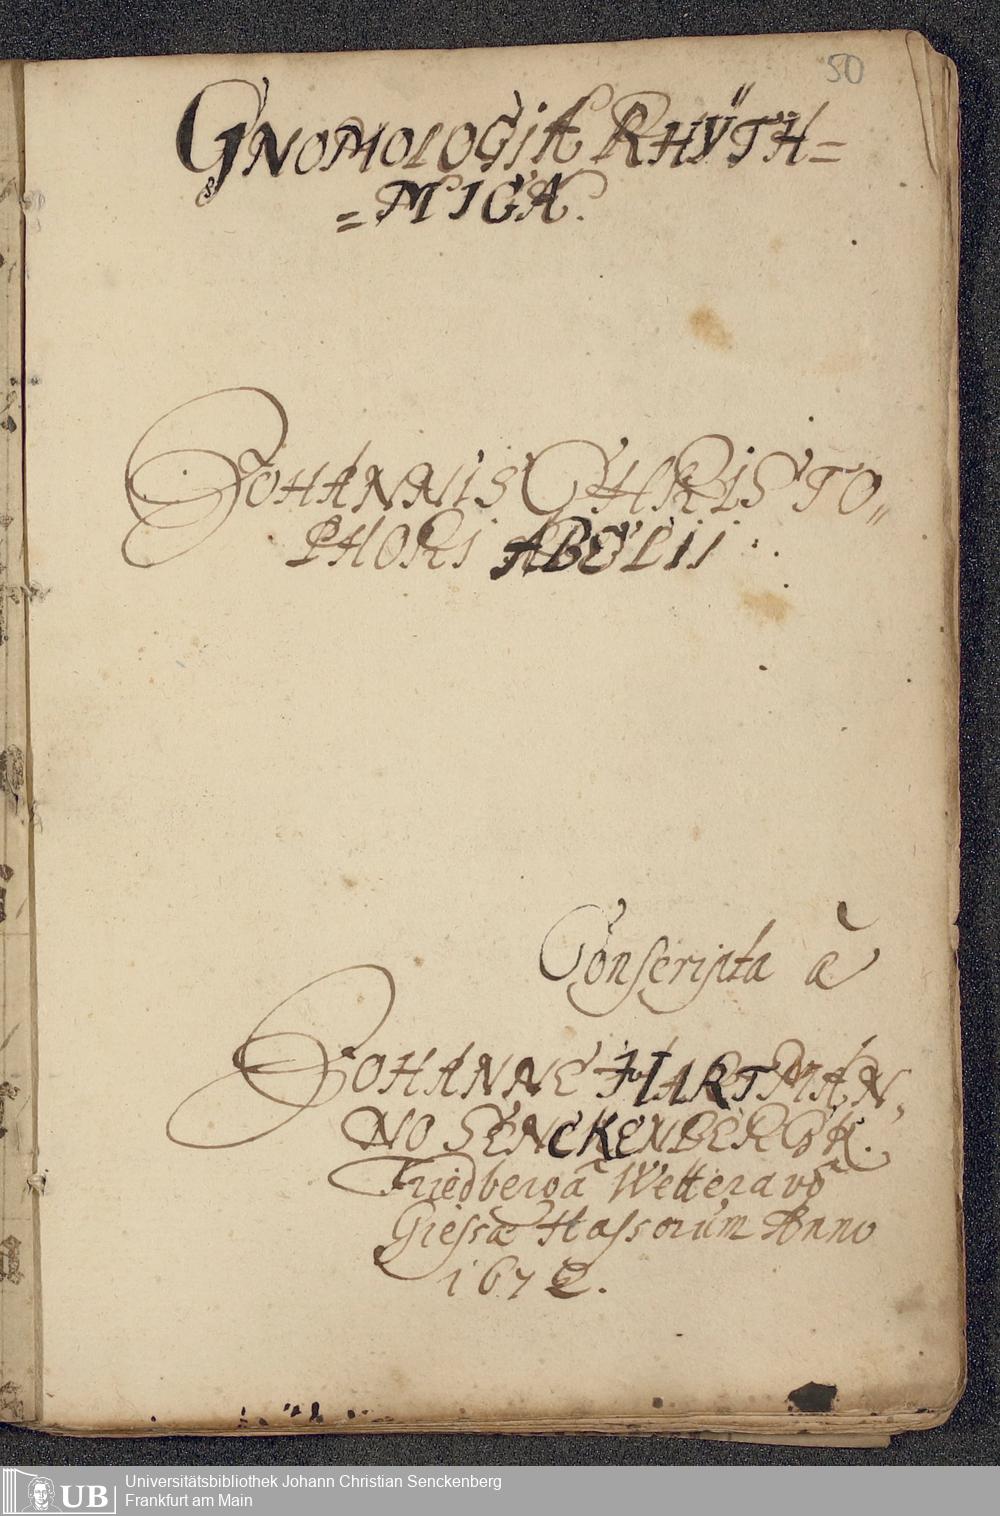 50
GNOMOLOGIA RHŸTH=
=MICA.
JOHANNIS CHRISTO„
PHORI ABELII
Conscripta â
JOHANNE HARTMAN,
NO SENCKENBERGK.
Friedbergâ Wetteravo
Giessæ Hassorum Anno
1672.
UB
Universitätsbibliothek Johann Christian Senckenberg
Frankfurt am Main